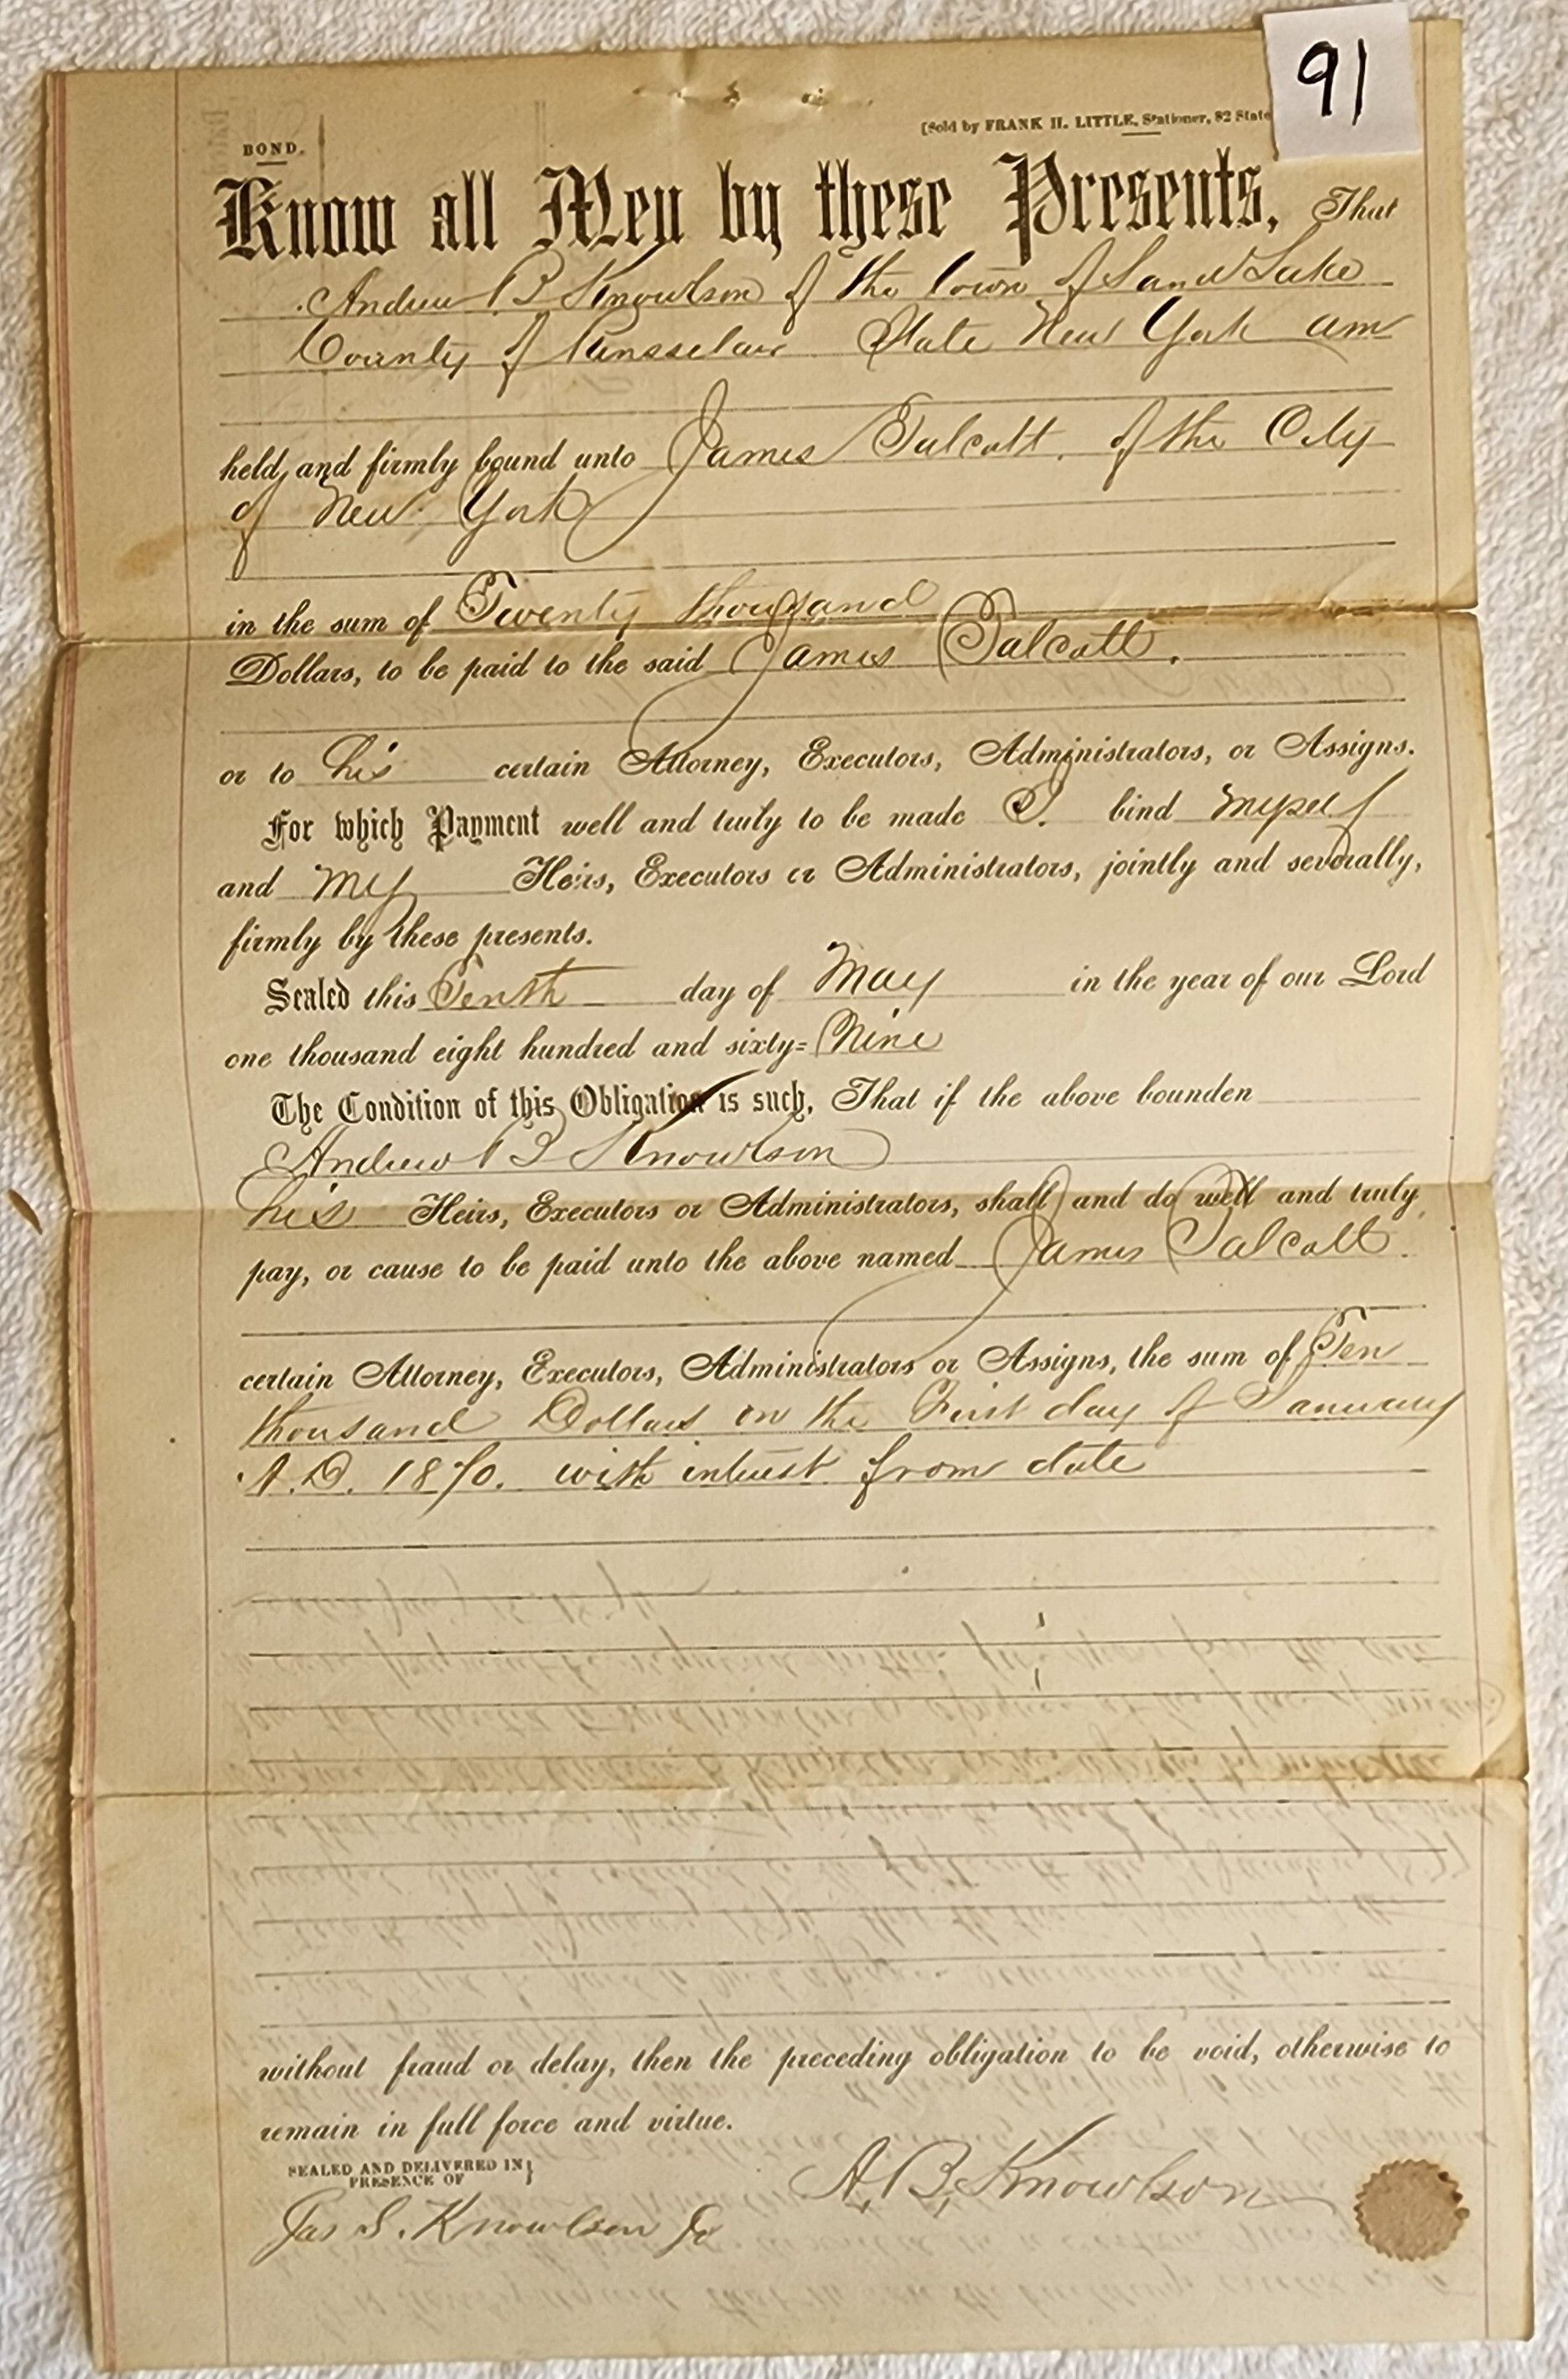 91
[Sold by FRANK H. LITTLE, Stationer, 82 State
BOND.
Know all Men by these Presents, That
Andrew B Knowlson of the Town of Sand Lake
County of Rensselaer State New York am
held and firmly bound unto James Talcott. of the City
of New York
in the sum of Twenty thousand
Dollars, to be paid to the said James Talcott.
or to his certain Attorney, Executors, Administrators, or Assigns.
For which Payment well and truly to be made I. bind myself
and my Heirs, Executors or Administrators, jointly and severally,
firmly by these presents.
Sealed this Tenth day of May in the year of our Lord
one thousand eight hundred and sixty=Nine
The Condition of this Obligation is such, That if the above bounden
Andrew B Knowlson
his Heirs, Executors or Administrators, shall and do well and truly
pay, or cause to be paid unto the above named James Talcott.
certain Attorney, Executors, Administrators or Assigns, the sum of Ten
thousand Dollars on the First day of January
A.D. 1870. with interest from date
without fraud or delay, then the preceding obligation to be void, otherwise to
remain in full force and virtue.
SEALED AND DELIVERED IN
PRESENCE OF
A. B. Knowlson
Jas S. Knowlson Jr